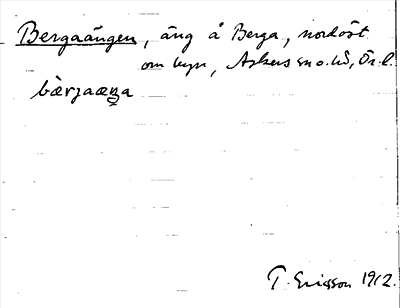 Bergaängen, äng å Berga, nordöst
om byn, Askers sn o. hd, Ör. l.
bærjaæŋa
T. Ericsson 1912.